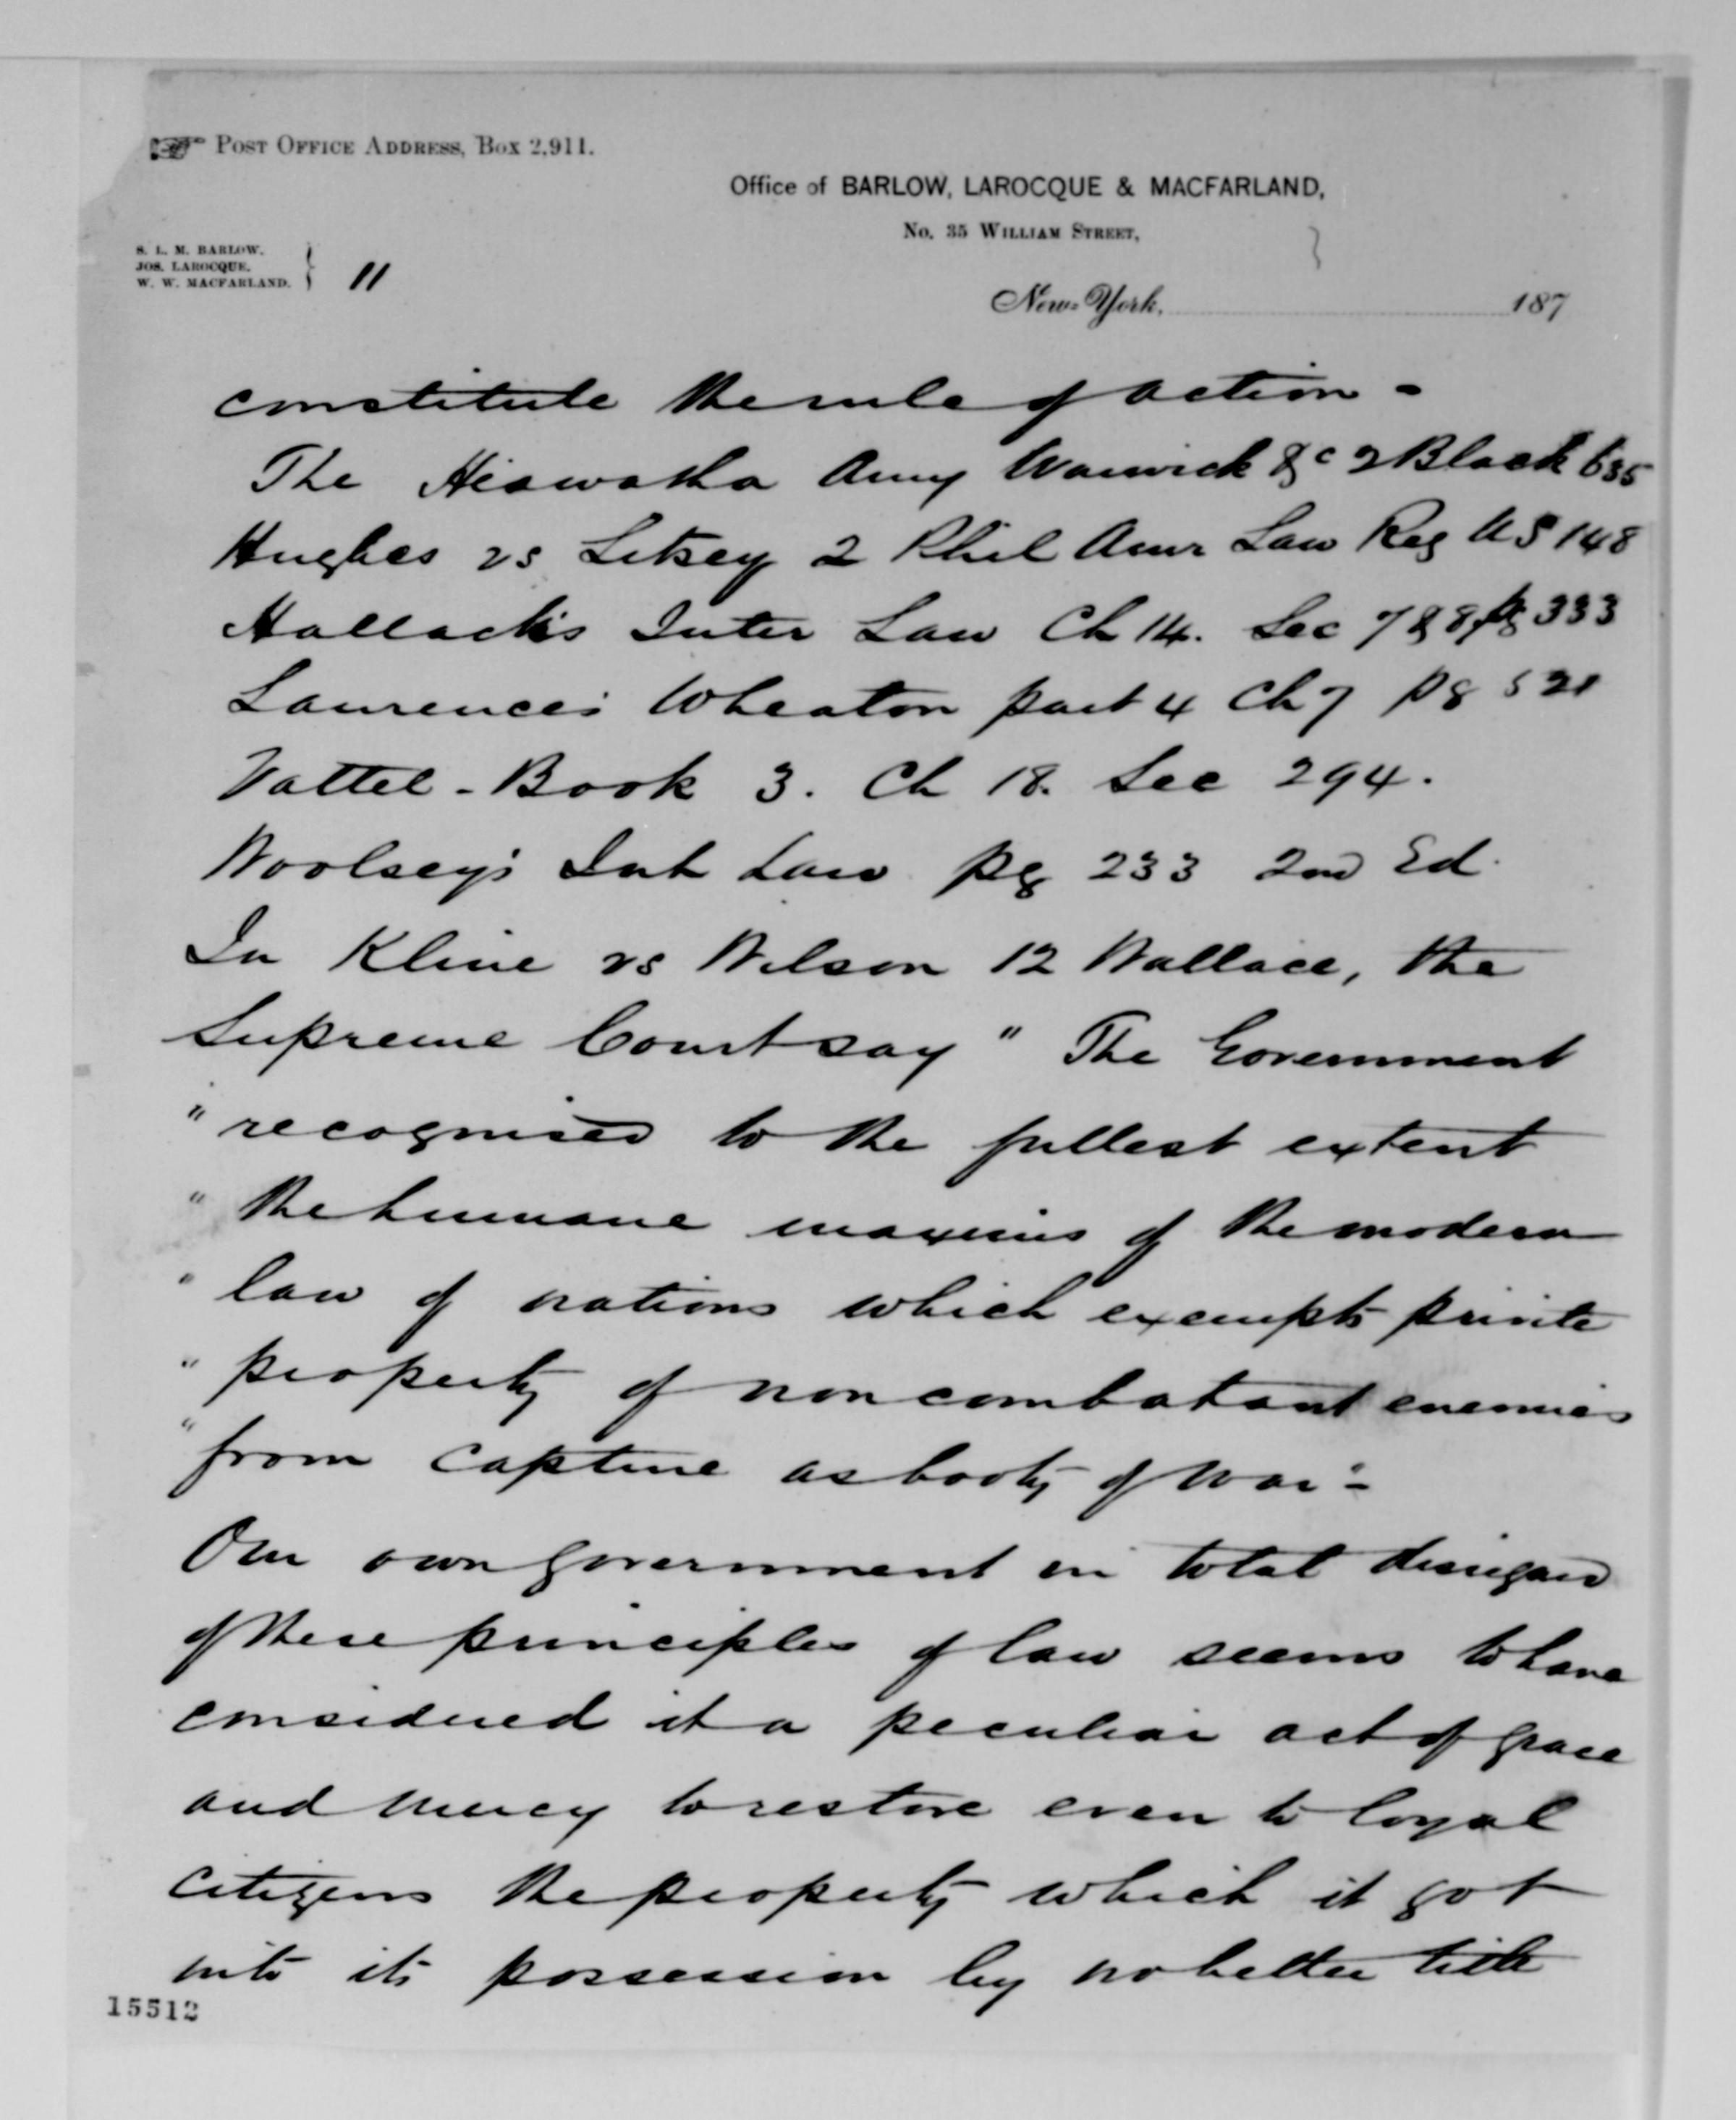 POST OFFICE ADDRESS, Box 2,911.
Office of BARLOW, LAROCQUE & MACFARLAND,
No. 35 WILLIAM STREET,
S. L. M. BARLOW.
JOS. LAROCQUE.
W. W. MACFARLAND.
11
New-York, 187
constitute the rule of action -
The Hiawatha Amy Warwick &c 2 Black 635
Hughes vs Litsey 2 Phil Amr Law Reg NS 148
Hallack's Inter Law Ch 14. Sec 7 & 8, pg 333
Laurence's Wheaton part 4 Ch 7 pg 521
Vattel - Book 3. Ch 18. Sec 294.
Woolsey's Int Law pg 233 2nd Ed.
In Kline vs Wilson 12 Wallace, the
Supreme Court say " The Government
" recognised to the fullest extent
" the humane maxims of the modern
" law of nations which exempts private
" property of non combatant enemies
" from capture as booty of war" -
Our own government in total disregard
of these principles of law seems to have
considered it a peculiar act of grace
and mercy to restore even to loyal
citizens the property which it got
into its possession by no better title
15512